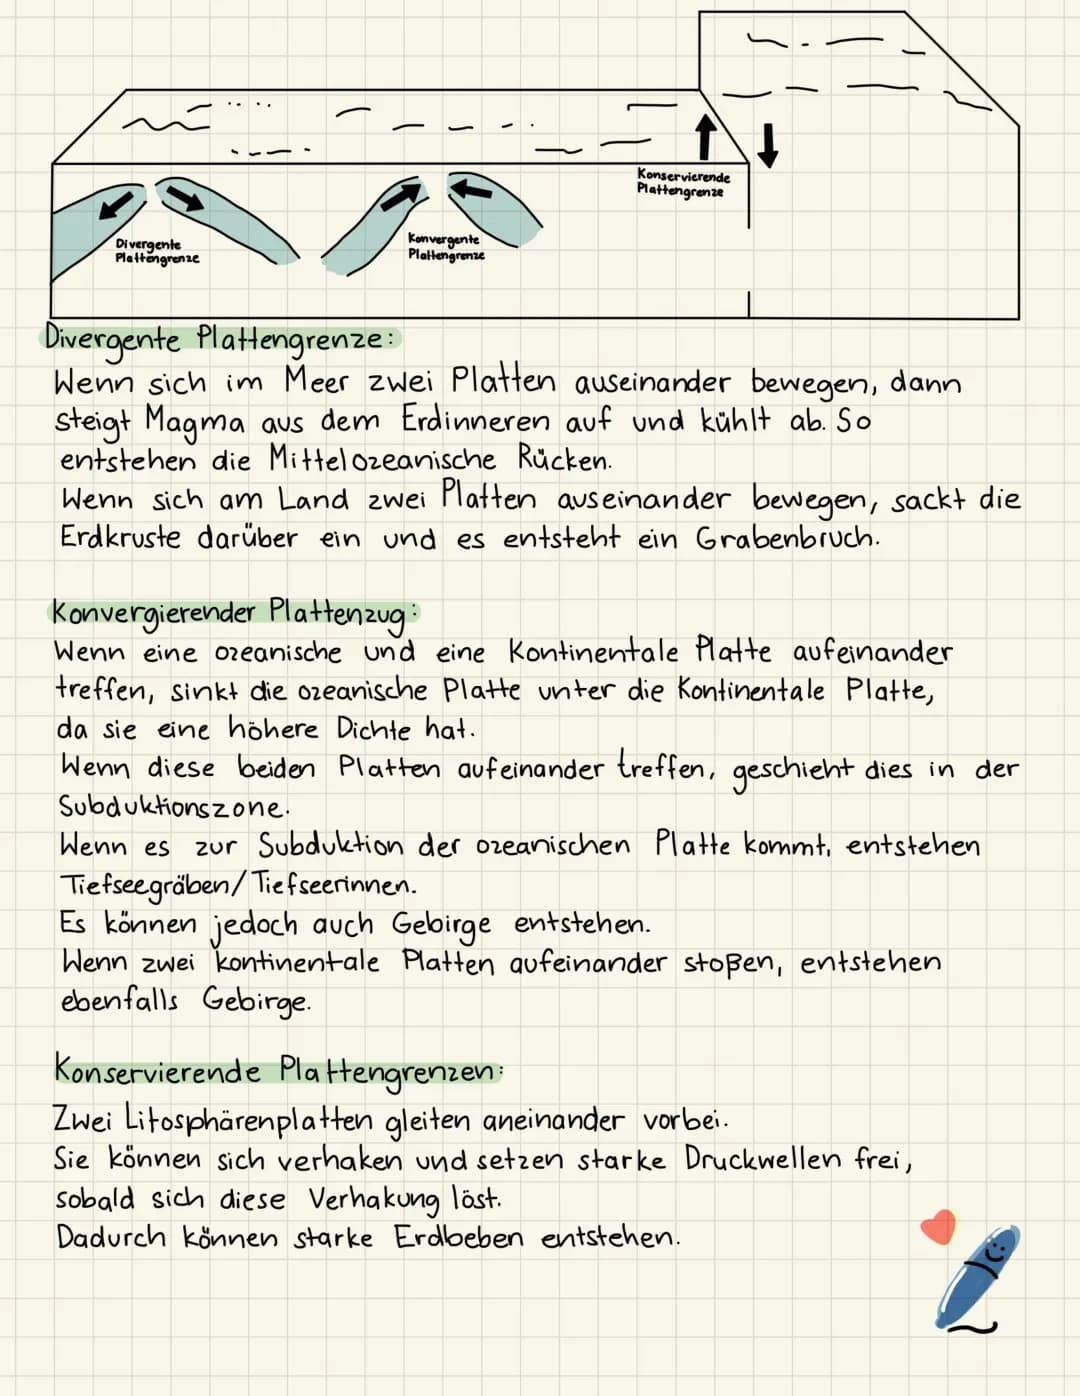 Konservierende
Plattengrenze
Divergente
Plattengrenze
Konvergente
Plattengrenze
Divergente Plattengrenze:
Wenn sich im Meer zwei Platten auseinander bewegen, dann
steigt Magma aus dem Erdinneren auf und kühlt ab. So
entstehen die Mittelozeanische Rücken.
Wenn sich am Land zwei Platten auseinander bewegen, sackt die
Erdkruste darüber ein und es entsteht ein Grabenbruch.
Konvergierender Plattenzug:
Wenn eine ozeanische und eine Kontinentale Platte aufeinander
treffen, sinkt die ozeanische Platte unter die Kontinentale Platte,
da sie eine höhere Dichte hat.
Wenn diese beiden Platten aufeinander treffen, geschieht dies in der
Subduktionszone.
Wenn es zur Subduktion der ozeanischen Platte kommt, entstehen
Tiefseegräben/Tiefseerinnen.
Es können jedoch auch Gebirge entstehen.
Wenn zwei kontinentale Platten aufeinander stoßen, entstehen
ebenfalls Gebirge.
Konservierende Plattengrenzen:
Zwei Litosphärenplatten gleiten aneinander vorbei.
Sie können sich verhaken und setzen starke Druckwellen frei,
sobald sich diese Verhakung löst.
Dadurch können starke Erdbeben entstehen.